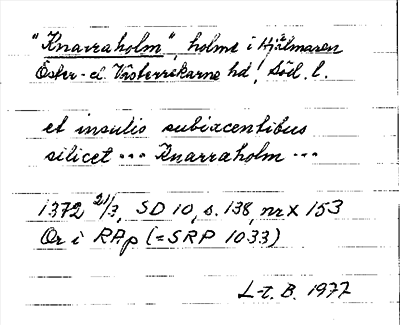 "Knarraholm", holme i Hjälmaren
Öster- el. Västerrekarne hd, Söd. l.
et insulis subiacentibus
silicet --- Knarraholm ---
1372 21/3, SD 10, s. 138, nr X 153
Or i RAp (=SRP 1033)
L-t. B. 1977